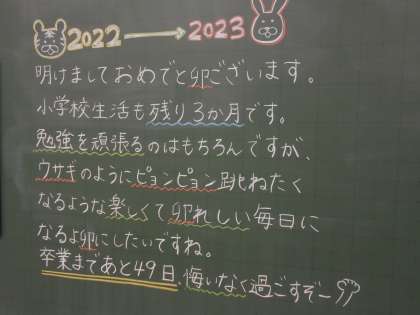 2022→2023
明けましておめでと卯ございます。
小学校生活も残り3か月です。
勉強を頑張るのはもちろんですが、
ウサギのようにピョンピョン跳ねたく
なるような楽しくて卯れしい毎日に
なるよ卯にしたいですね。
卒業まであと49日、悔いなく過ごすぞー